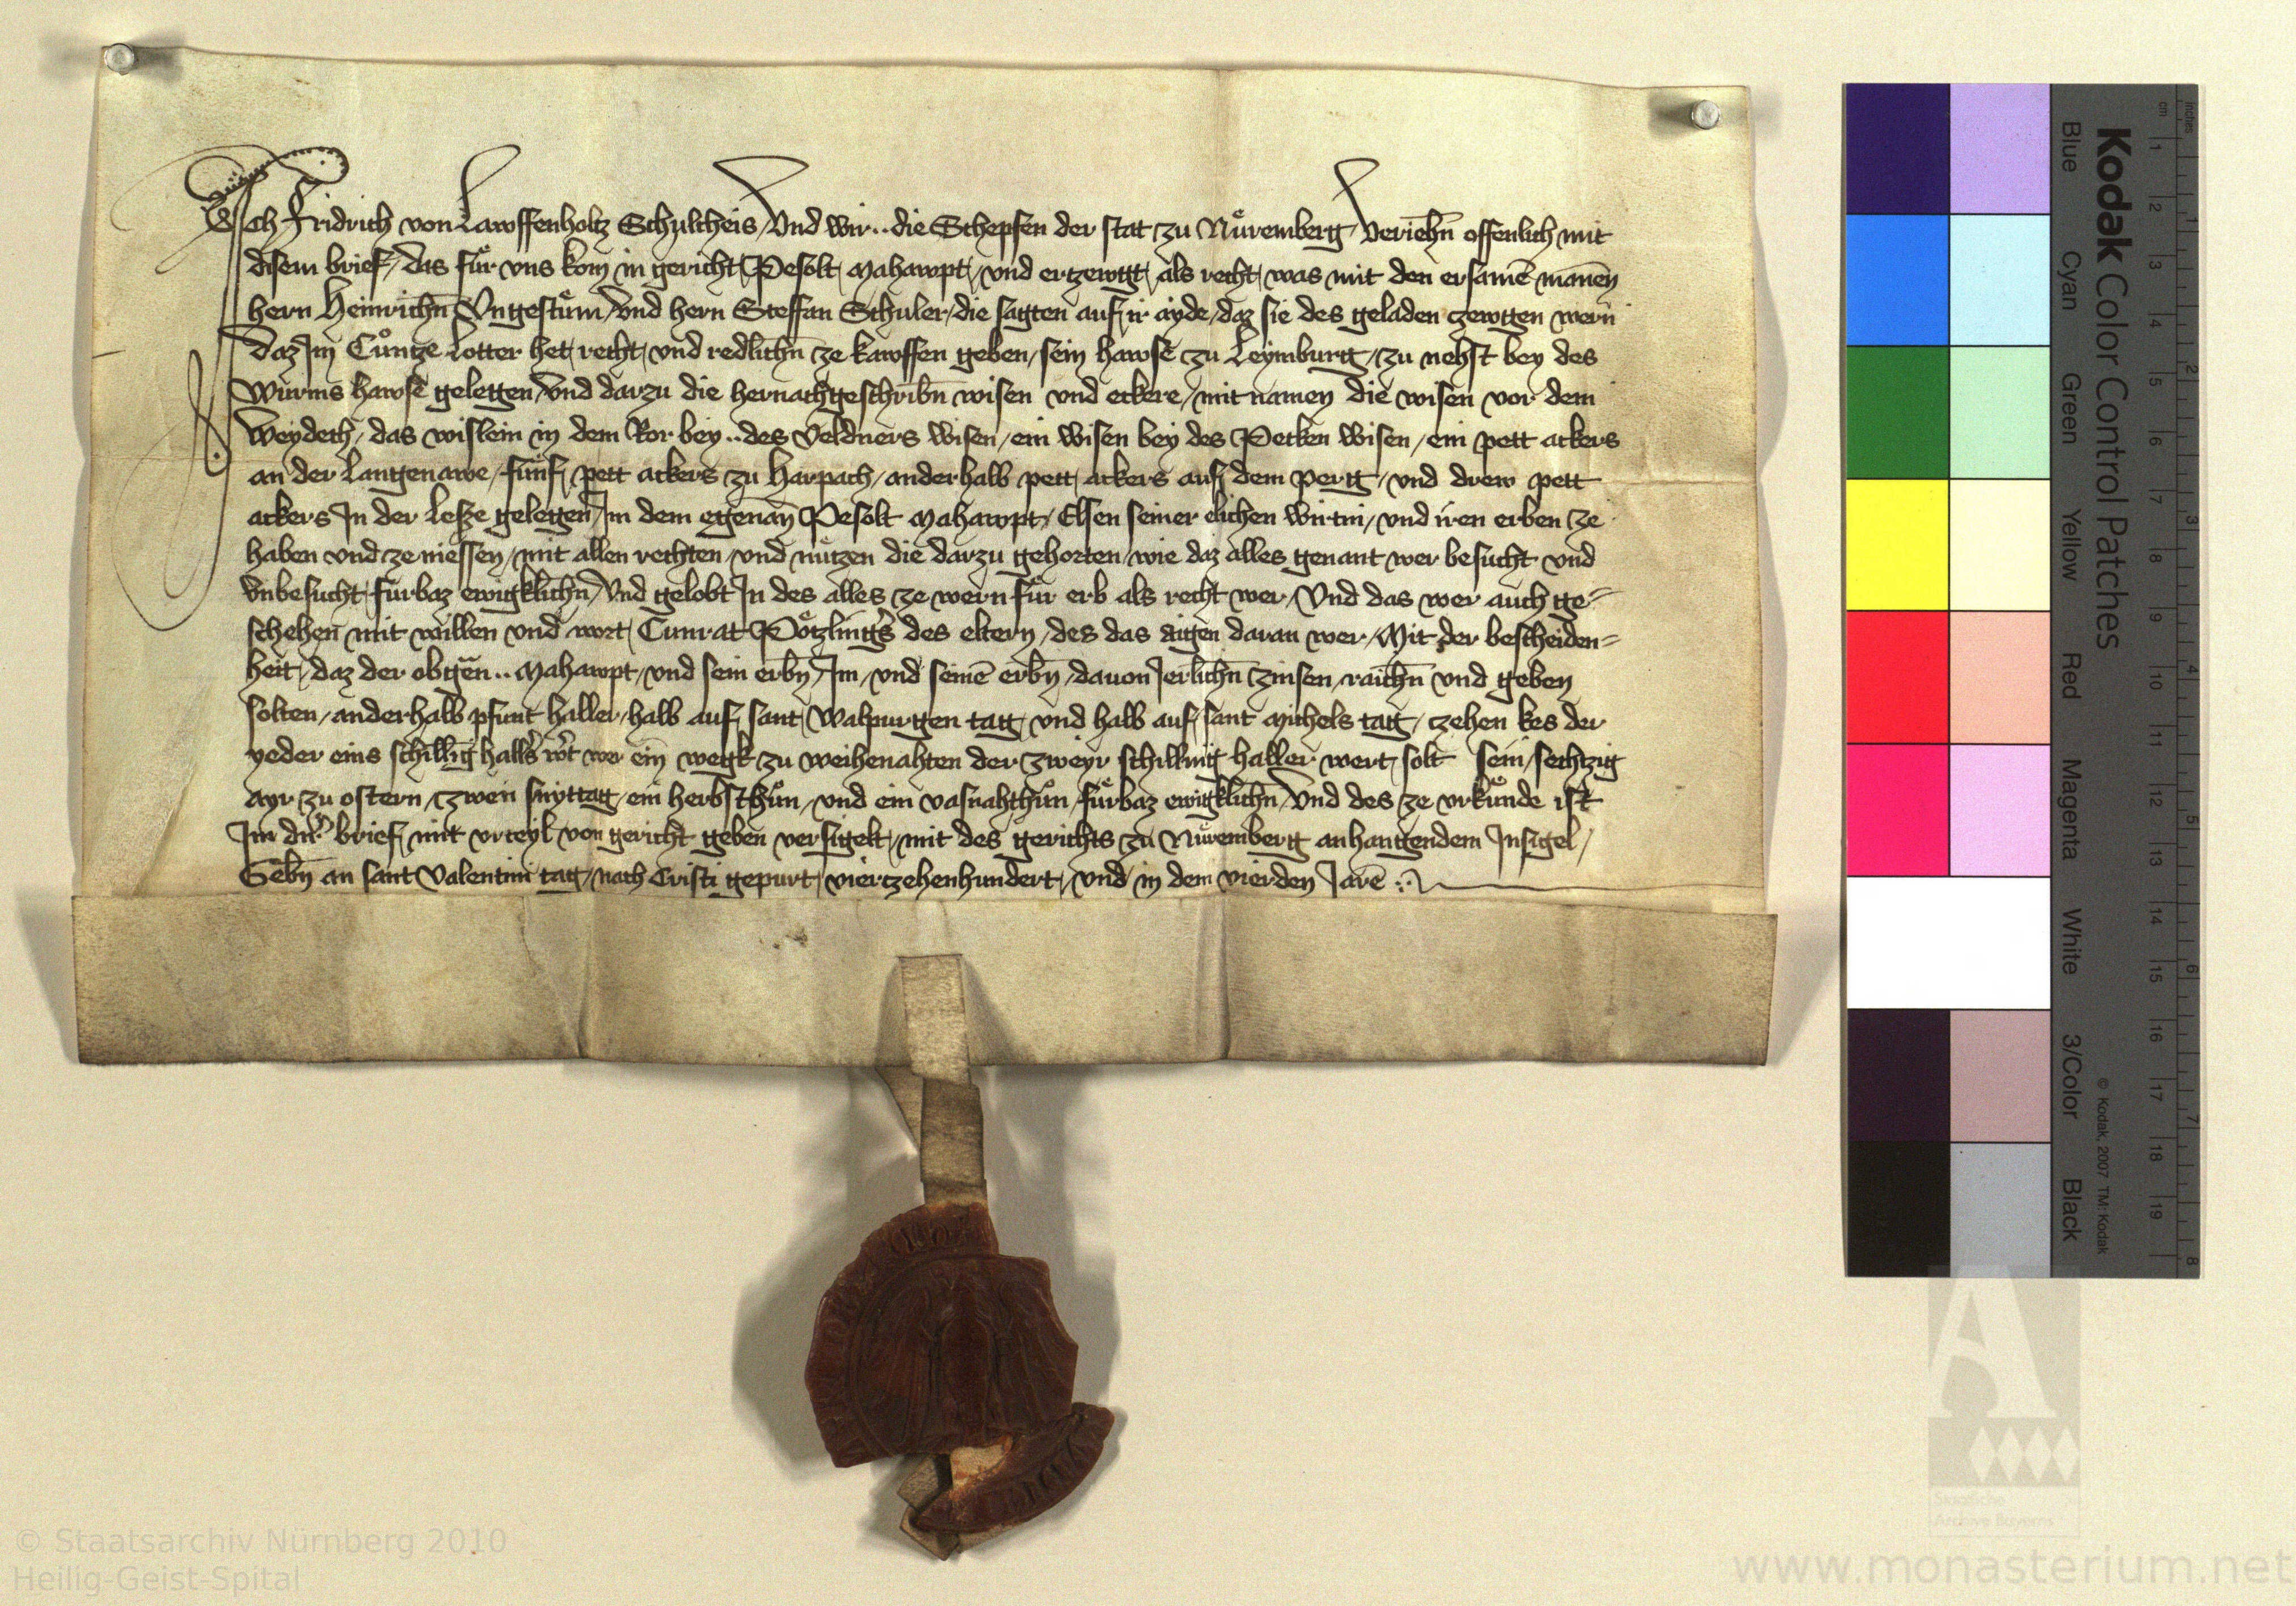 Ich Fridrich von Lawffenholtz Schultheis / Vnd wir .. die Schepfen der stat zu Nuͤremberg / Veriehn̄ offenlich mit
disem brief / das fuͤr vns kom in gericht / Pesolt Mahawpt / vnd erzewgt / als recht was mit den ersamē manēn
hern Heinrichn̄ Vngestuͤm / Vnd hern Steffan Schuler / die sagten auf ir ayde / daz sie des geladen czewgen wern
daz Im Cuͦntze Lotter het recht / vnd redlichn̄ ze kawffen geben / sein hawsē zu Leymburg / zu nehst bey des
Wurms hawsē gelegen / Vnd darzu die hernachgeschribn̄ wisen vnd eckere / mit namen die wisen vor dem
Weydech / das wislein in dem Ror bey .. des Veldners wisen / ein wisen bey des Pecken wisen / ein pett ackers
an der Langenawe / fuͤnf pett ackers zu Harpach / anderhalb pett ackers auf dem perg / vnd drew pett
ackers In der Lesze gelegen / Im dem egenan̄ Pesolt Mahawpt / Elsen seiner elichen wirtin / vnd iren erben ze
haben vnd ze niessen / mit allen rechten / vnd nuͤtzen die darzu gehorten / wie daz alles genant wer besucht vnd
Vnbesucht / furbaz ewigklichn̄ / Vnd gelobt In des alles ze wern fuͤr erb als recht wer / Vnd das wer auch ge-
schehen mit willen vnd wort / Cunrat Poͤtzlings des eltern / des das aigen daran wer / Mit der bescheiden-
heit / daz der obgen̄ .. Mahawpt / vnd sein erbn̄ / Im / vnd seinē erbn̄ / dauon Ierlichn̄ zinsen / raichn̄ vnd geben
solten / anderhalb pfunt haller / halb auf sant Walpurgen tag / vnd halb auf sant Michels tag / zehen kes der
yeder eins schillīg hallˢ wˢt wer ein wegk zu weihenahten der zweyr schilling haller wert solt sein / sechtzig
ayr zu ostern / czwen snyttag / ein herbsthuͦn / vnd ein vasnahthuͦn / fuͤrbaz ewigklichn̄ / Vnd des ze vrkuͤnde ist
Im dirˢ brief mit vrteyl von gericht geben versigelt / mit des gerichts zu Nuͤremberg anhangendem Insigel /
Gebn̄ an sant Valentini tag / nach Cristi gepurt / vierzehenhundert / vnd in dem vierden Jarē
Kodak Color Control Patches
Blue Cyan Green Yellow Red Magenta White 3/Color Black
© Kodak, 2007 TM: Kodak
inches 1 2 3 4 5 6 7 8
cm 1 2 3 4 5 6 7 8 9 10 11 12 13 14 15 16 17 18 19
Staatliche
Archive Bayerns
© Staatsarchiv Nürnberg 2010
Heilig-Geist-Spital
www.monasterium.net